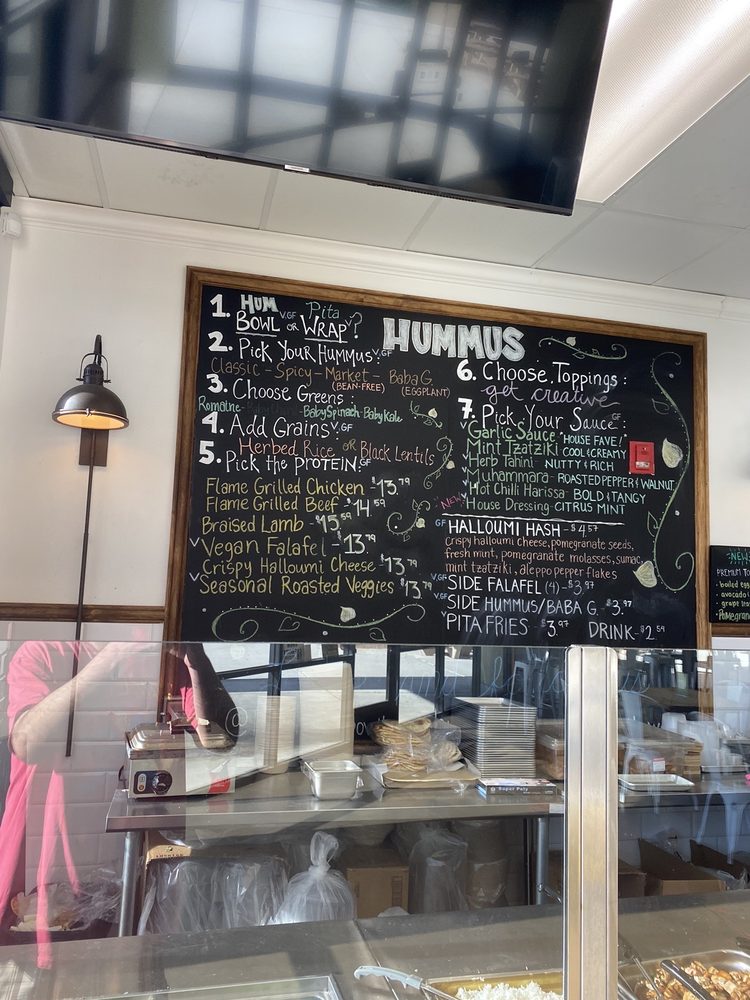 HUMMUS
1. HUM BOWL OR Pita WRAP? V.GF
2. Pick Your HUMMUS V.GF
Classic - Spicy - Market - Baba G.
(BEAN-FREE) (EGGPLANT)
3. Choose Greens:
Romaine - Baby Spinach - Baby Kale
4. Add Grains V.GF
Herbed Rice or Black Lentils
5. Pick the PROTEIN: GF
Flame Grilled Chicken - $13.79
Flame Grilled Beef - $14.59
Braised Lamb - $15.59
V Vegan Falafel - $13.79
Crispy Halloumi Cheese - $13.79
V Seasonal Roasted Veggies $13.79
6. Choose Toppings:
get creative
7. Pick Your Sauce: GF
V Garlic Sauce - HOUSE FAVE!
Mint Tzatziki COOL & CREAMY
V Herb Tahini - NUTTY & RICH
V Muhammara - ROASTED PEPPER & WALNUT
V Hot Chilli Harissa - BOLD & TANGY
NEW! V House Dressing - CITRUS MINT
GF HALLOUMI HASH - $4.57
crispy halloumi cheese, pomegranate seeds,
fresh mint, pomegranate molasses, sumac,
mint tzatziki, aleppo pepper flakes
V.GF SIDE FALAFEL (4) - $3.97
V.GF SIDE HUMMUS/BABA G. $3.97
V PITA FRIES - $3.97 DRINK - $2.59
NEW
PREMIUM TO
- boiled egg
- avocado
- grape
- Pomegran
Super Poly